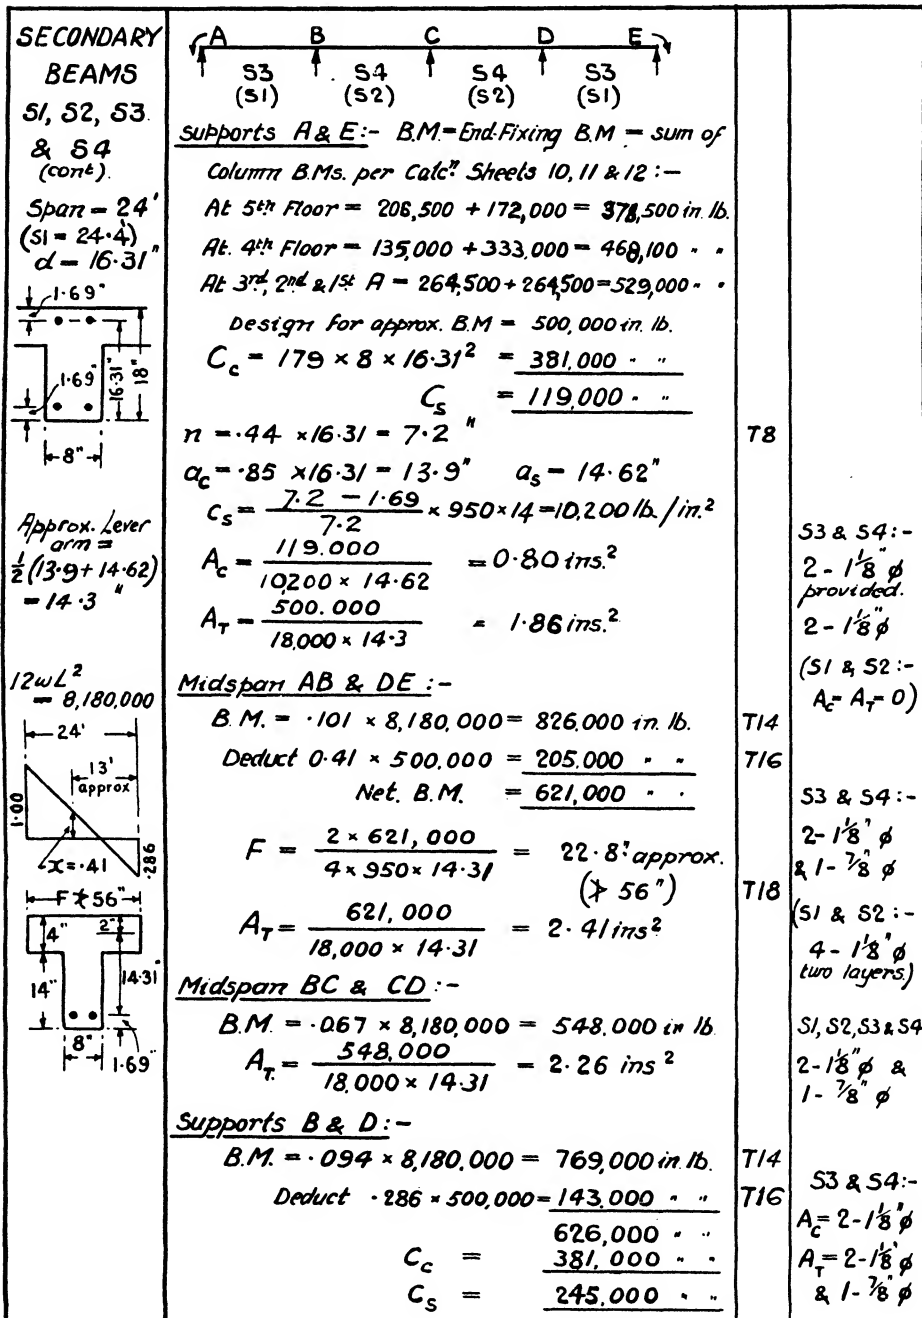 SECONDARY
BEAMS
S1, S2, S3.
& S4
(cont).
Span = 24'
(S1 = 24·4')
d = 16·31"
1·69"
1·69"
16·31"
18"
8"
Approx. Lever
arm =
½(13·9 + 14·62)
= 14·3"
12wL²
= 8,180,000
24'
13'
approx
1·00
x = ·41
·286
F ≯ 56"
4"
2"
14"
14·31"
8"
1·69"
A B C D E
S3 S4 S4 S3
(S1) (S2) (S2) (S1)
Supports A & E:- B.M = End-Fixing B.M = sum of
Column B.Ms. per Calcⁿ. Sheets 10, 11 & 12 :-
At 5th Floor = 206,500 + 172,000 = 378,500 in. lb.
At. 4th Floor = 135,000 + 333,000 = 468,100 " "
At 3rd, 2nd & 1st A = 264,500 + 264,500 = 529,000 " "
Design for approx. B.M = 500,000 in. lb.
Cc = 179 × 8 × 16·31² = 381,000 " "
Cs = 119,000 " "
n = ·44 × 16·31 = 7·2 " T8
ac = ·85 × 16·31 = 13·9" as = 14·62"
cs = (7·2 - 1·69)/7·2 × 950 × 14 = 10,200 lb./in.²
Ac = 119.000/(10200 × 14·62) = 0·80 ins.²
AT = 500.000/(18,000 × 14·3) = 1·86 ins.²
Midspan AB & DE :-
B.M. = ·101 × 8,180,000 = 826,000 in. lb. T14
Deduct 0·41 × 500,000 = 205.000 " " T16
Net. B.M. = 621,000 " "
F = (2 × 621,000)/(4 × 950 × 14·31) = 22·8" approx.
(≯ 56") T18
AT = 621,000/(18,000 × 14·31) = 2·41 ins²
Midspan BC & CD :-
B.M. = ·067 × 8,180,000 = 548.000 in lb
AT. = 548,000/(18,000 × 14·31) = 2·26 ins²
Supports B & D :-
B.M. = ·094 × 8,180,000 = 769,000 in. lb. T14
Deduct ·286 × 500,000 = 143,000 " " T16
626,000 " "
Cc = 381,000 " "
Cs = 245,000 " "
S3 & S4:-
2 - 1⅛" φ
provided.
2 - 1⅛" φ
(S1 & S2 :-
Ac = AT = 0)
S3 & S4 :-
2 - 1⅛" φ
& 1 - ⅞" φ
(S1 & S2 :-
4 - 1⅛" φ
two layers)
S1, S2, S3 & S4
2 - 1⅛" φ &
1 - ⅞" φ
S3 & S4:-
Ac = 2 - 1⅛" φ
AT = 2 - 1⅛" φ
& 1 - ⅞" φ